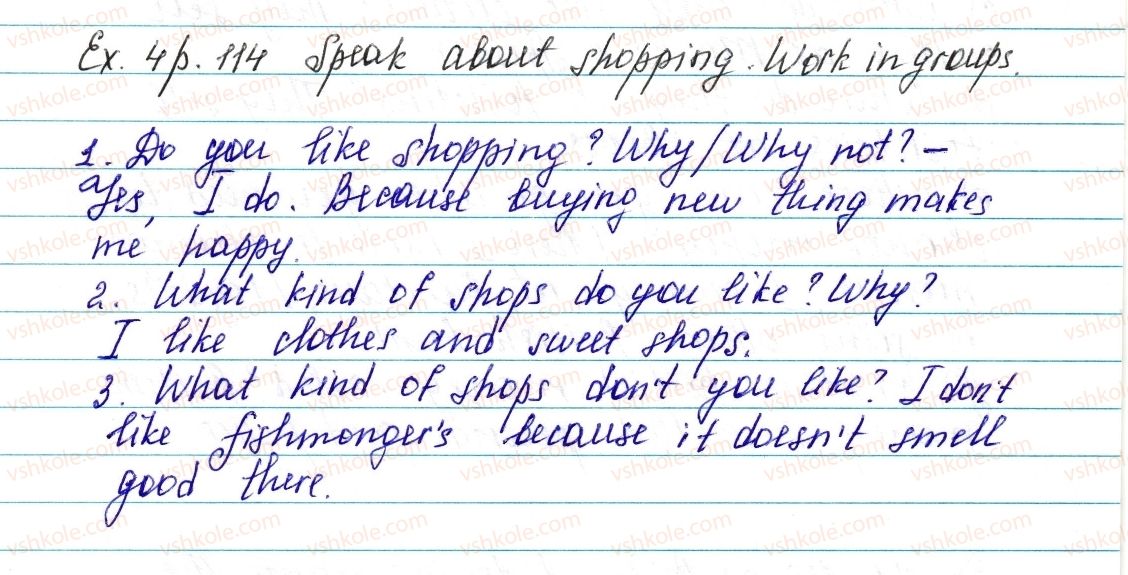 Ex. 4 p. 114 Speak about shopping. Work in groups.
1. Do you like shopping? Why/Why not? –
Yes, I do. Because buying new thing makes
me happy.
2. What kind of shops do you like? Why?
I like clothes and sweet shops.
3. What kind of shops don't you like? I don't
like fishmonger's because it doesn't smell
good there.